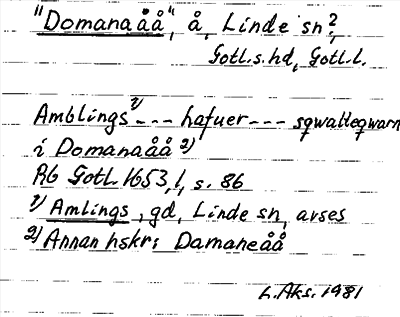 "Domanaåå", å, Linde sn?,
Gotl.s.hd, Gotl.l.
Amblings 1) --- hafuer --- sqwalleqwarn
i Domanaåå 2)
Rb Gotl. 1653,1, s. 86
1) Amlings, gd, Linde sn, avses
2) Annan hskr: Damaneåå
L. Aks. 1981